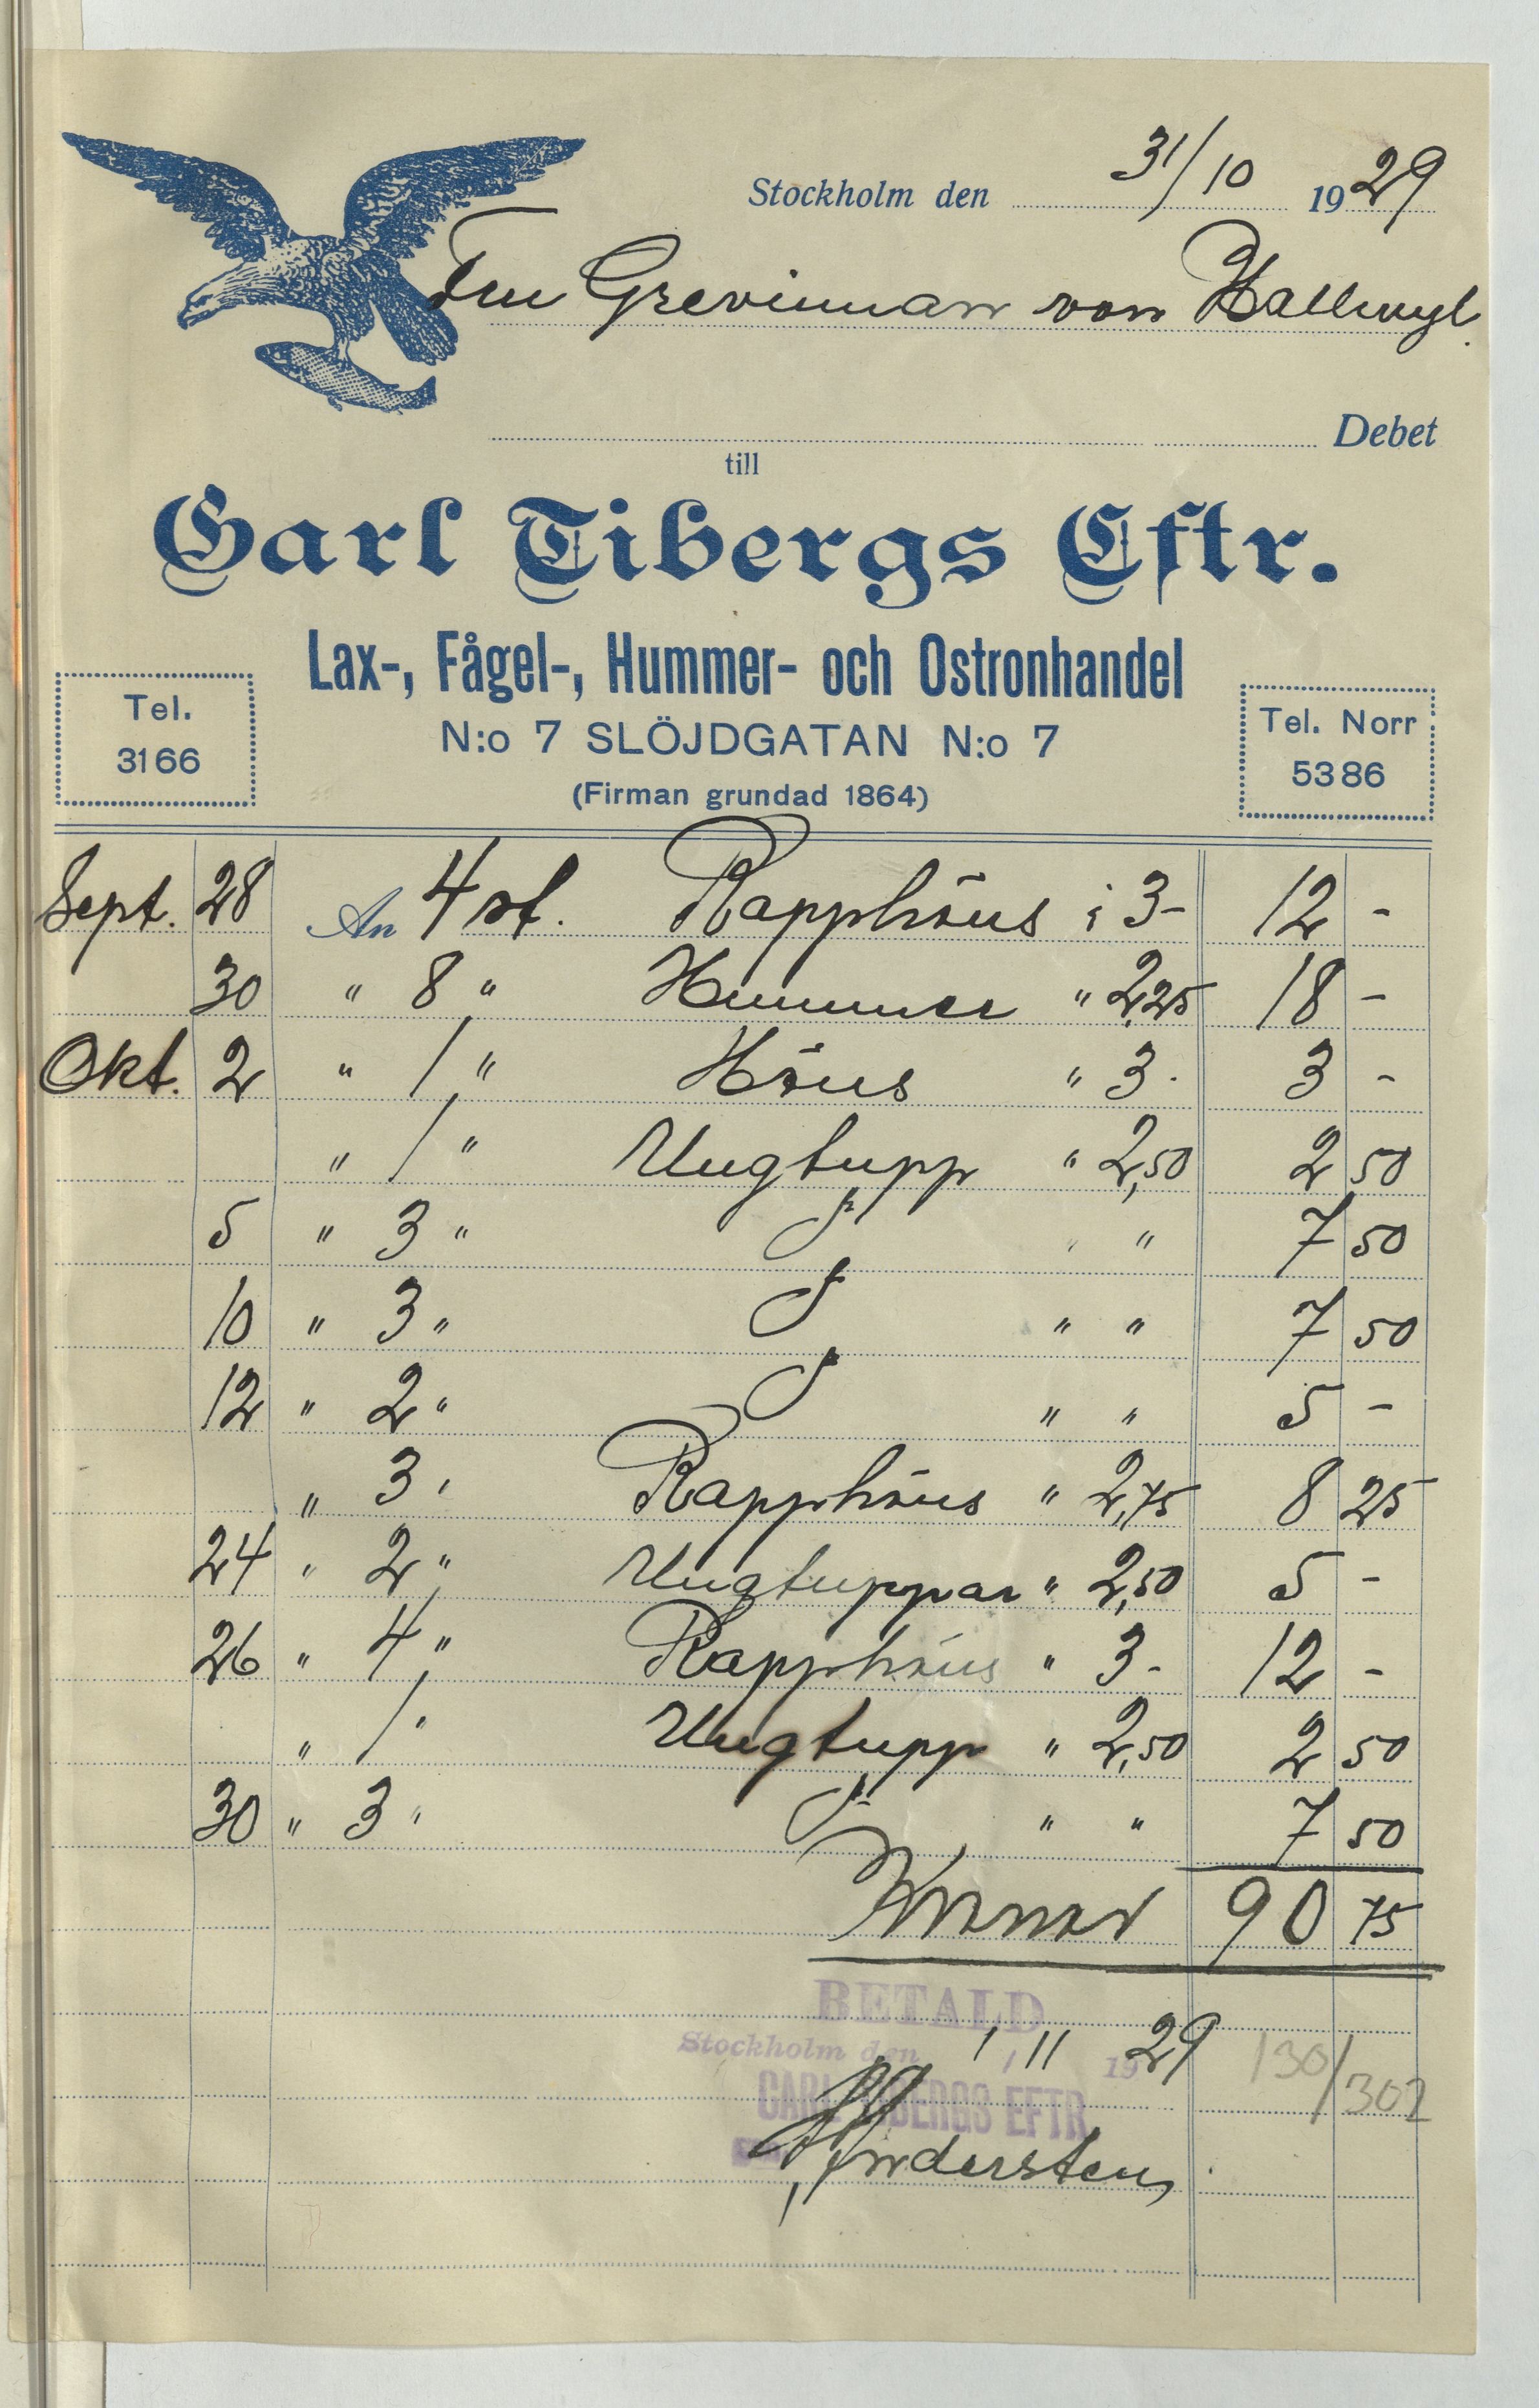 Stockholm den 31/10 1929
Fru Grevinnan von Hallwyl.
Debet
till
Carl Tibergs Eftr.
Lax-, Fågel-, Hummer- och Ostronhandel
Tel. 3166
N:o 7 SLÖJDGATAN N:o 7
Tel. Norr 5386
(Firman grundad 1864)
Sept. 28 An 4 st. Rapphöns i 3- 12 -
30 " 8 " Hummer " 2,25 18 -
Okt. 2 " 1 " Höns " 3. 3 -
" 1 " Ungtupp " 2,50 2 50
5 " 3 " " " 7 50
10 " 3 " " " 7 50
12 " 2 " " " 5 -
" 3 " Rapphöns " 2,75 8 25
24 " 2 " Ungtuppar " 2,50 5 -
26 " 4 " Rapphöns " 3- 12 -
" 1 " Ungtupp " 2,50 2 50
30 " 3 " " " 7 50
Kronor 90 75
BETALD
Stockholm den 1/11 1929
130/302
CARL TIBERGS EFTR.